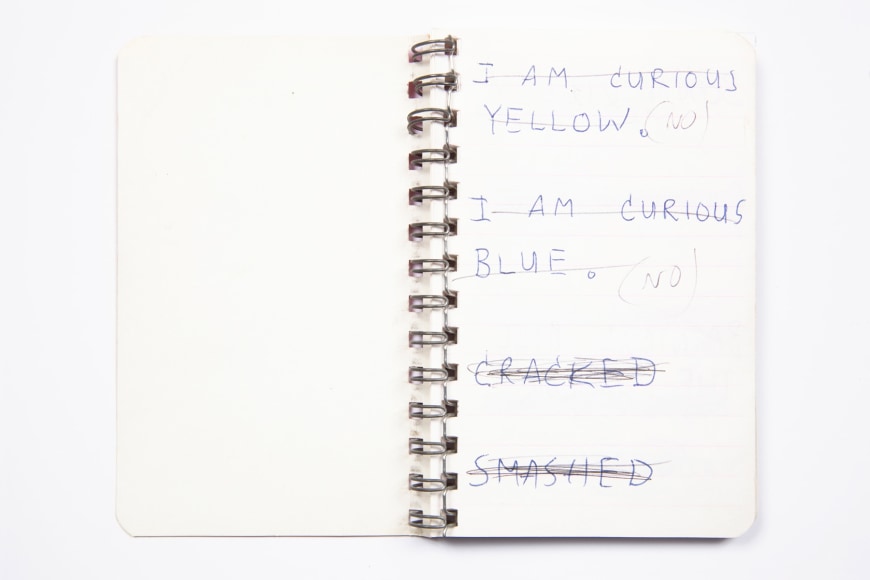 I AM CURIOUS
YELLOW. (NO)
I AM CURIOUS
BLUE. (NO)
CRACKED
SMASHED